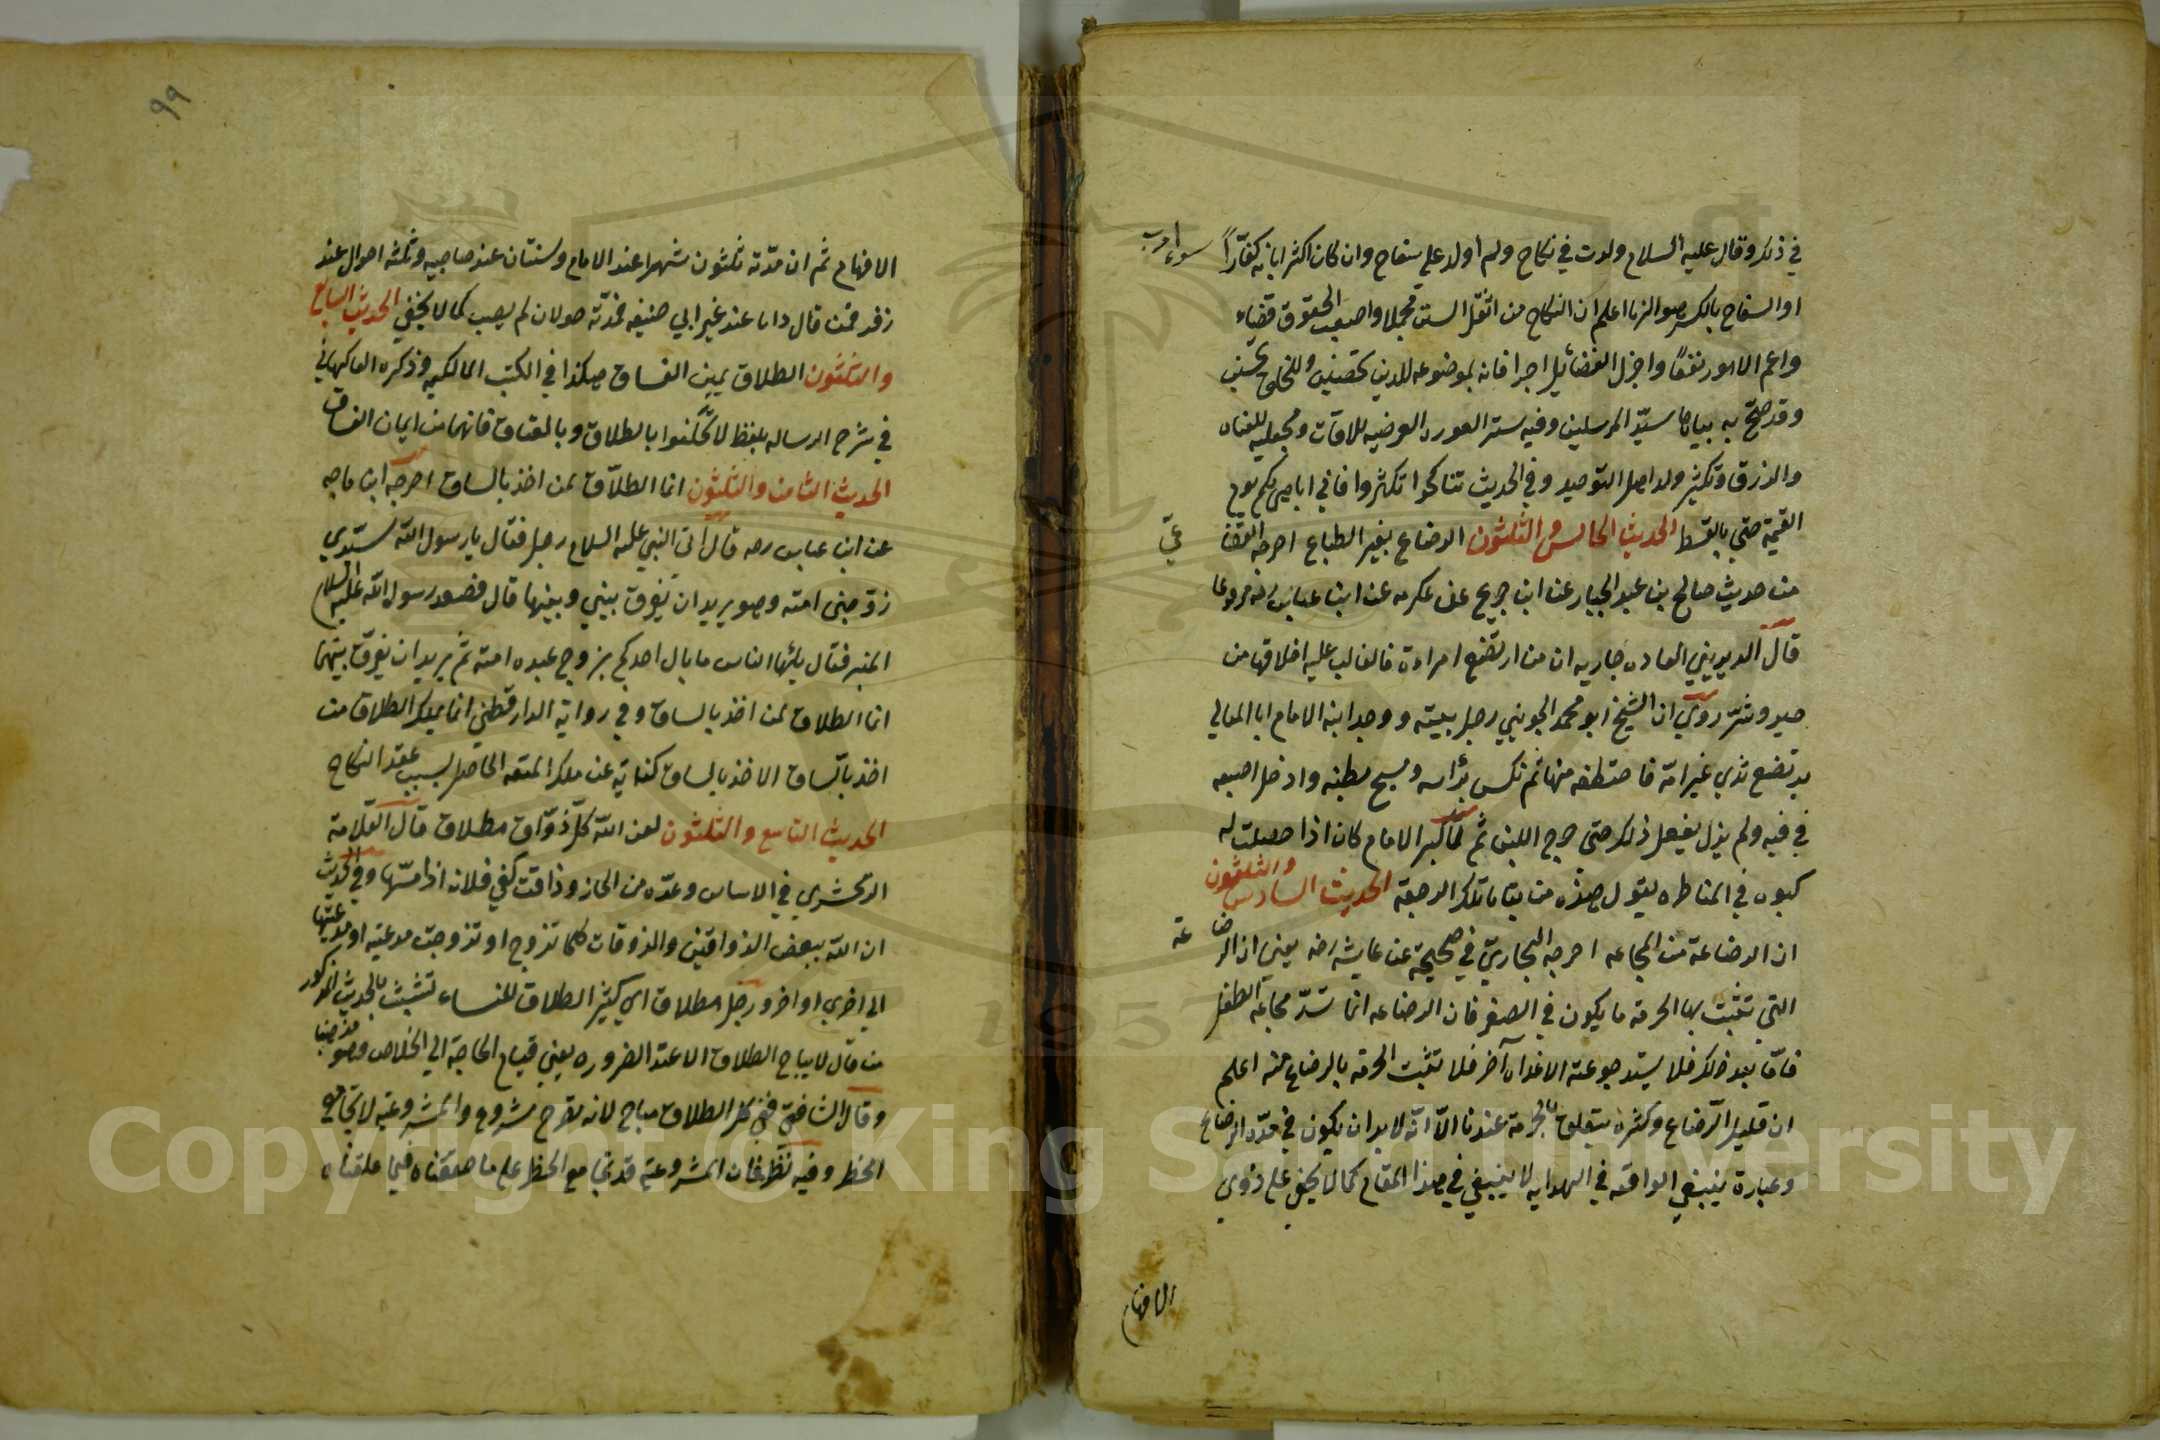 في ذلك وقال عليه السلام ولدت في نكاح ولم أولد علي سفاح وان كان اكثر ابائه كفّاراً
او السفاح بالكسر هو الزنا اعلم ان النكاح من اثقل السنن محملا واصعب الحقوق قضاء
واعم الامور نفعًا واجزل الفضائل اجرا فانه بموضوعه للدين تحصين وللخلق تحسين
وقد صح به سيّد المرسلين وفيه ستر العورة للافات ومجلبة للغناء
والرزق وتكثير ولد اهل التوحيد وفي الحديث تناكحوا تكثروا فاني اباهي بكم يوم
القيمة حتي بالسقط الحديث الخامس والثلثون الرضاع يغير الطباع اخرجه القضا
عيّ
من حديث صالح بن عبد الجبار عن ابن جريج عن عكرمه عن ابن عباس رضه مرفوعا
قال الديريني العاده جاريه ان من ارتضع امراءة فالغالب عليه اخلاقها من
خير وشرّ روي ان الشيخ ابو محمد الجويني دخل بيته ووجد ابنه الامام ابا المعالي
يرتضع ثدي غير امّه فاختطفه منها ثم نكس براسه ومسح بطنه وادخل اصبعه
في فيه ولم يزل يفعل ذلك حتى خرج اللبن ثم لمّا كبر الامام كان اذا حصلت له
كبوه في المناظره يقول هذه من بقايا تلك الرضعة الحديث السادس والثلثون
ان الرضاعة من المجاعه اخرجه البخاريّ في صحيحه عن عايشه رضه يعني ان الرضا
عة
التي تثبت بها الحرمة ما يكون في الصغر فان الرضاعه انما تسدّ مجاعة الطفل
فامّا بعد ذلك فلا يسد جوعته الا غذاء آخر فلا تثبت الحرمة بالرضاع منه اعلم
ان قليل الرّضاع وكثره يتعلق بالحرمة عندنا الّا انّه لا بد ان يكون في مدّة الرضاع
وعبارة ينبغي الواقعه في الهدايه لا ينبغي في هذا المقام كما لا يخفي علي ذوي
الافهام
٩٩
الافهام ثم ان مدّته ثلثون شهرا عند الامام وسنتان عند صاحبيه وثلثه احوال عند
زفر فمن قال واما عند غير ابي حنيفه فمدّته حولان لم يصب كما لا يخفي الحديث السابع
والثلثون الطلاق يمين الفساق هكذا في الكتب المالكيه وذكره الفاكهاني
في شرح الرساله بلفظ لا تحلفوا بالطلاق وبالعتاق فانهما من ايمان الفساق
الحديث الثامن والثلثون انما الطلاق لمن اخذ بالساق اخرجه ابن ماجه
عن ابن عباس رضه قال اتى النبي عليه السلام رجل فقال يا رسول الله سيّدي
زوّجني امته وهو يريد ان يفرق بيني وبينها قال فصعد رسول الله عليه السلام
المنبر فقال يا ايّها الناس ما بال احدكم يزوج عبده امته ثم يريد ان يفرّق بينهما
انما الطلاق لمن اخذ بالساق وفي رواية الدارقطني انما يملك الطلاق من
اخذ بالساق الاخذ بالساق كناية عن ملك المتعه الحاصل بسبب عقد النكاح
الحديث التاسع والثلثون لعن الله كلّ ذوّاق مطلاق قال العلّامة
الزمخشري في الاساس وعدّه من المجاز وذاقت كفي فلانه اذا مسّها وفي الحديث
ان الله يبغض الذواقين والذوقات كلما تزوج او تزوجت مدعينه او مدعينها
الي اخري او اخر ورجل مطلاق اي كثير الطلاق للنساء تشبث بالحديث المذكور
من قال لا يباح الطلاق الا عند الضروره يعني قيام الحاجة الي الخلاص وهو مذهبنا
وقال الشافعي كل الطلاق مباح لانه تصرح مشروع والمشروعيّه لا تجامع
الحظر وفيه نظر فان المشروعية قد تجامع الحظر علي ما حققناه فيما علقناه